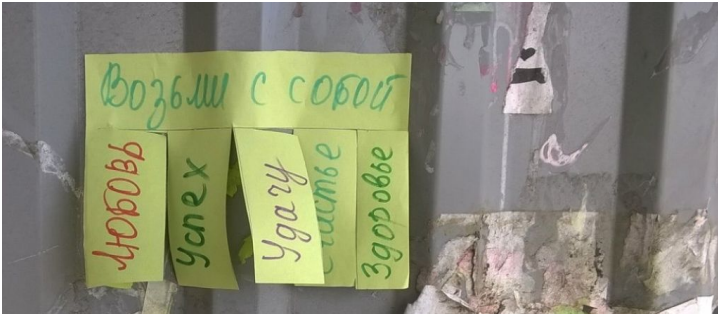 Возьми с собой
Любовь
Успех
Удачу
Счастье
Здоровье